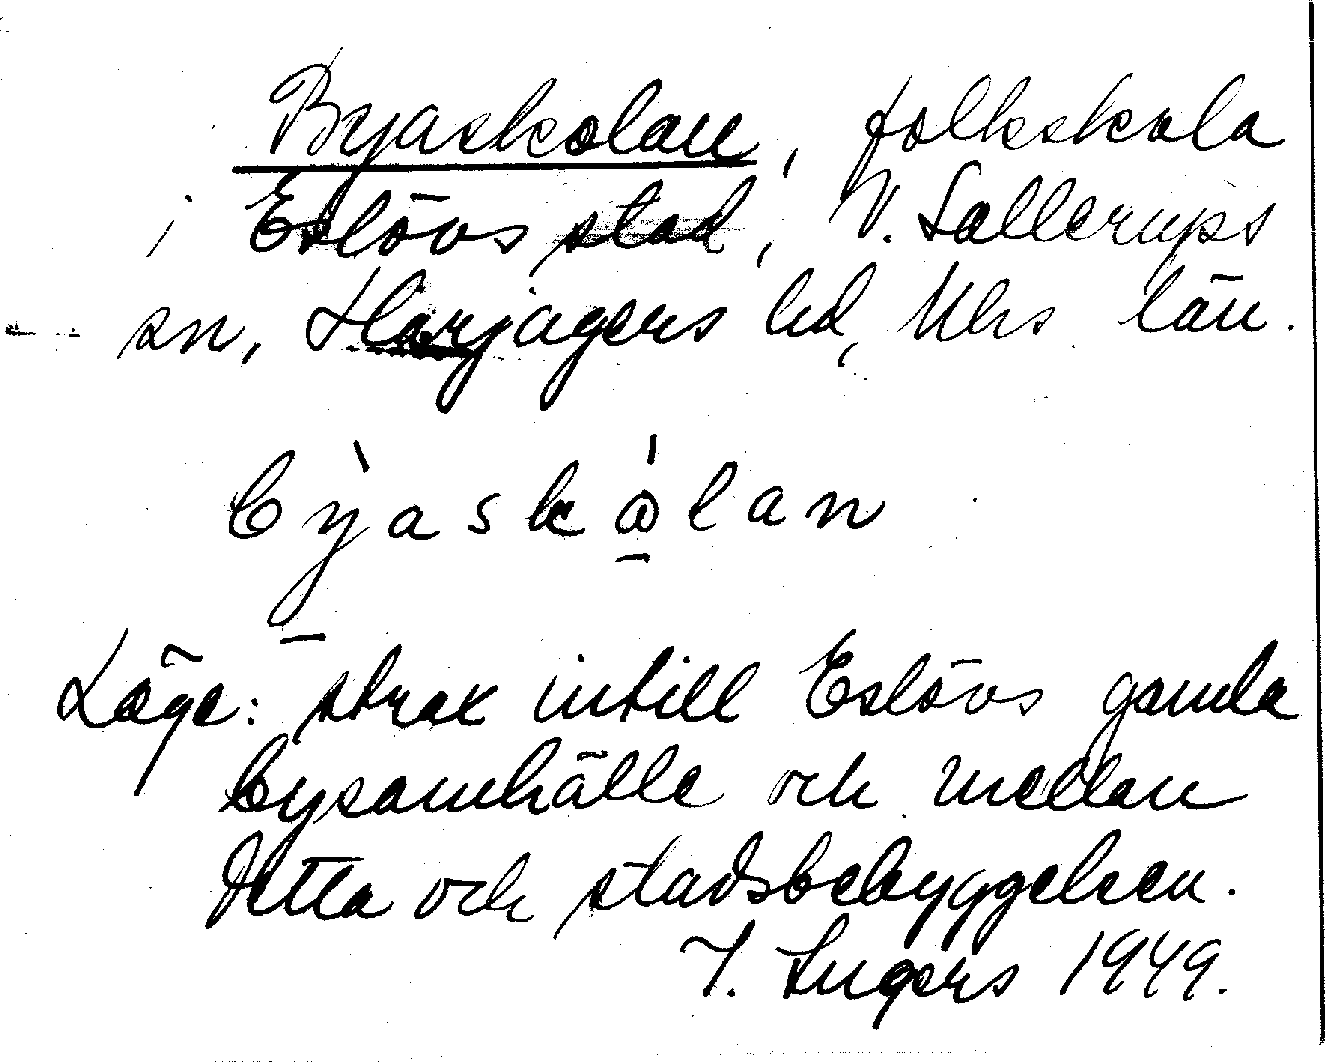 Byaskolan, folkskola
i Eslövs stad, V. Sallerups
sn, Harjagers hd, Mhs län.
bỳ̱askɷ̱́lan
Läge: strax intill Eslövs gamla
bysamhälle och mellan
detta och stadsbebyggelsen.
I. Ingers 1949.